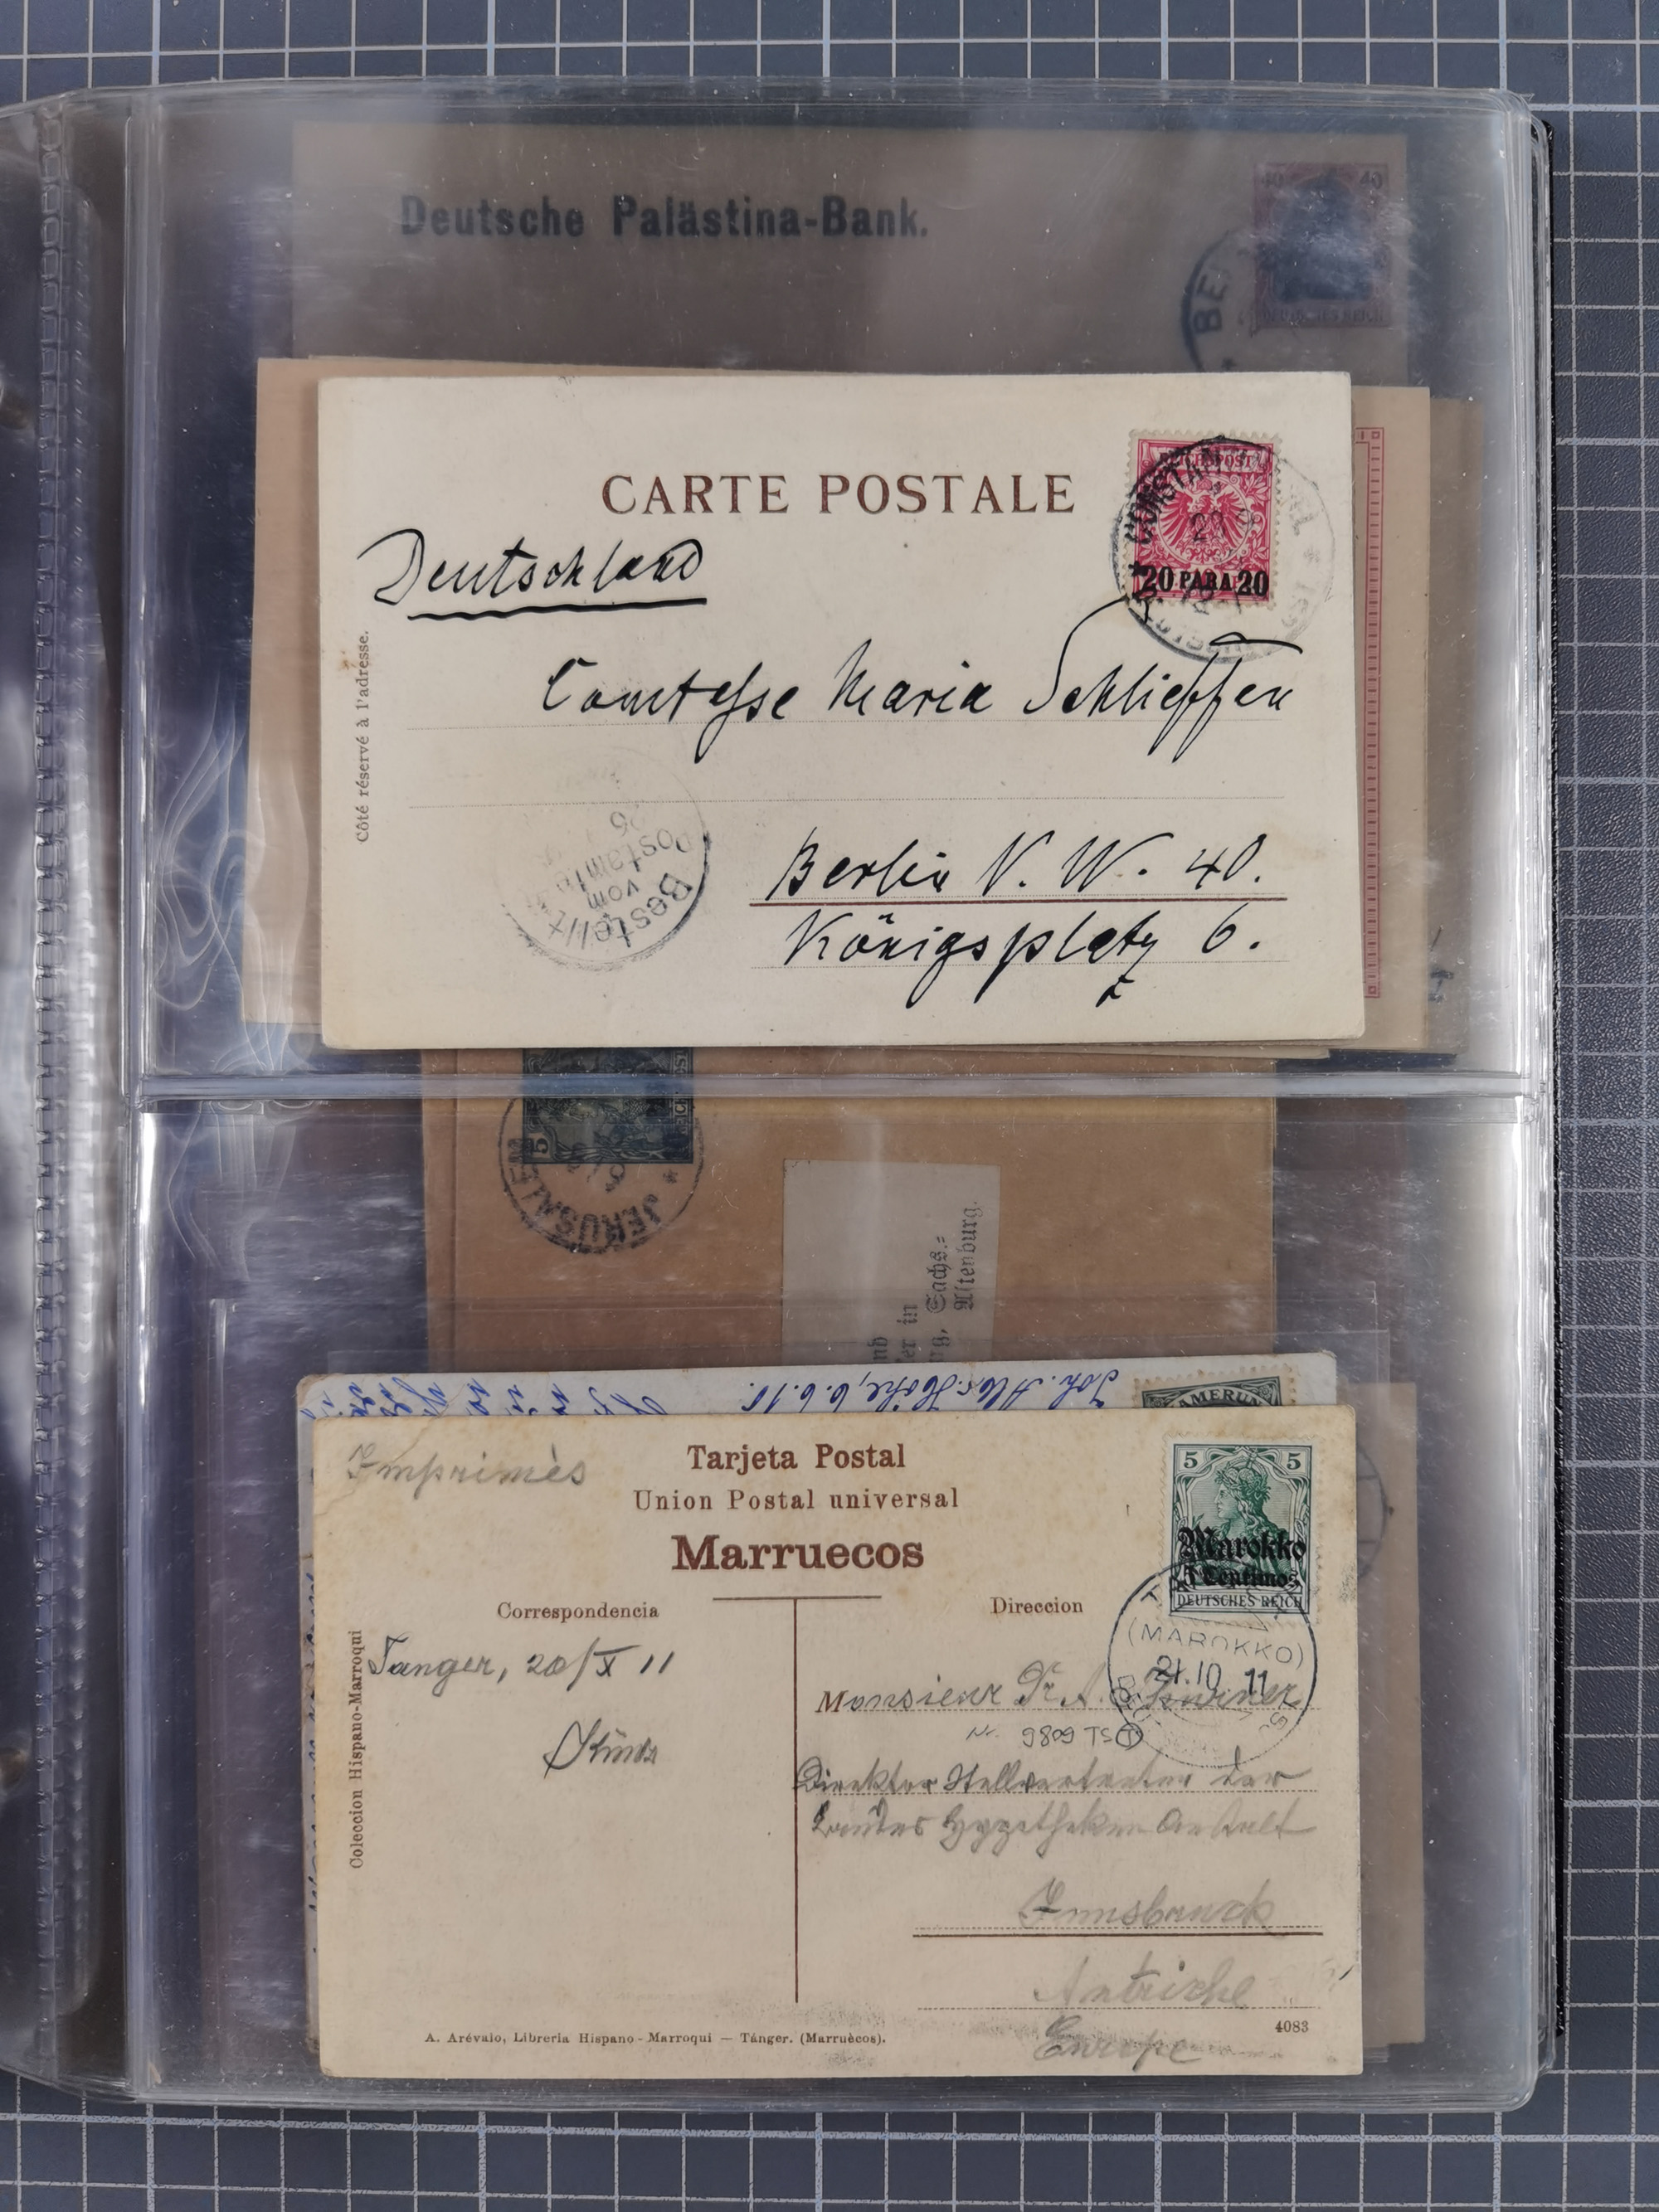 Deutsche Palästina-Bank.
40 40
DEUTSCHES REICH
BE
CARTE POSTALE
REICHSPOST
CONSTANT
20 PARA 20
Deutschland
Côté réservé à l'adresse.
Comtesse Maria Schlieffen
Bestellt
vom
Postamte
26
Berlin N. W. 40.
Königsplatz 6.
5
JERUSALEM
er in
Sachs.=
Altenburg.
KAMERUN
Imprimès
Tarjeta Postal
Union Postal universal
Marruecos
5 5
Marokko
5 Centimos
DEUTSCHES REICH
Correspondencia
Direccion
(MAROKKO)
21.10 11
Coleccion Hispano-Marroqui
Tanger, 20/X 11
Monsieur Dr. A.
Nr. 9809 TS
Direktor Stellvertreter der
Landes Hypotheken Anstalt
Innsbruck
Autriche
Europe
4083
A. Arévalo, Libreria Hispano-Marroqui — Tánger. (Marruècos).